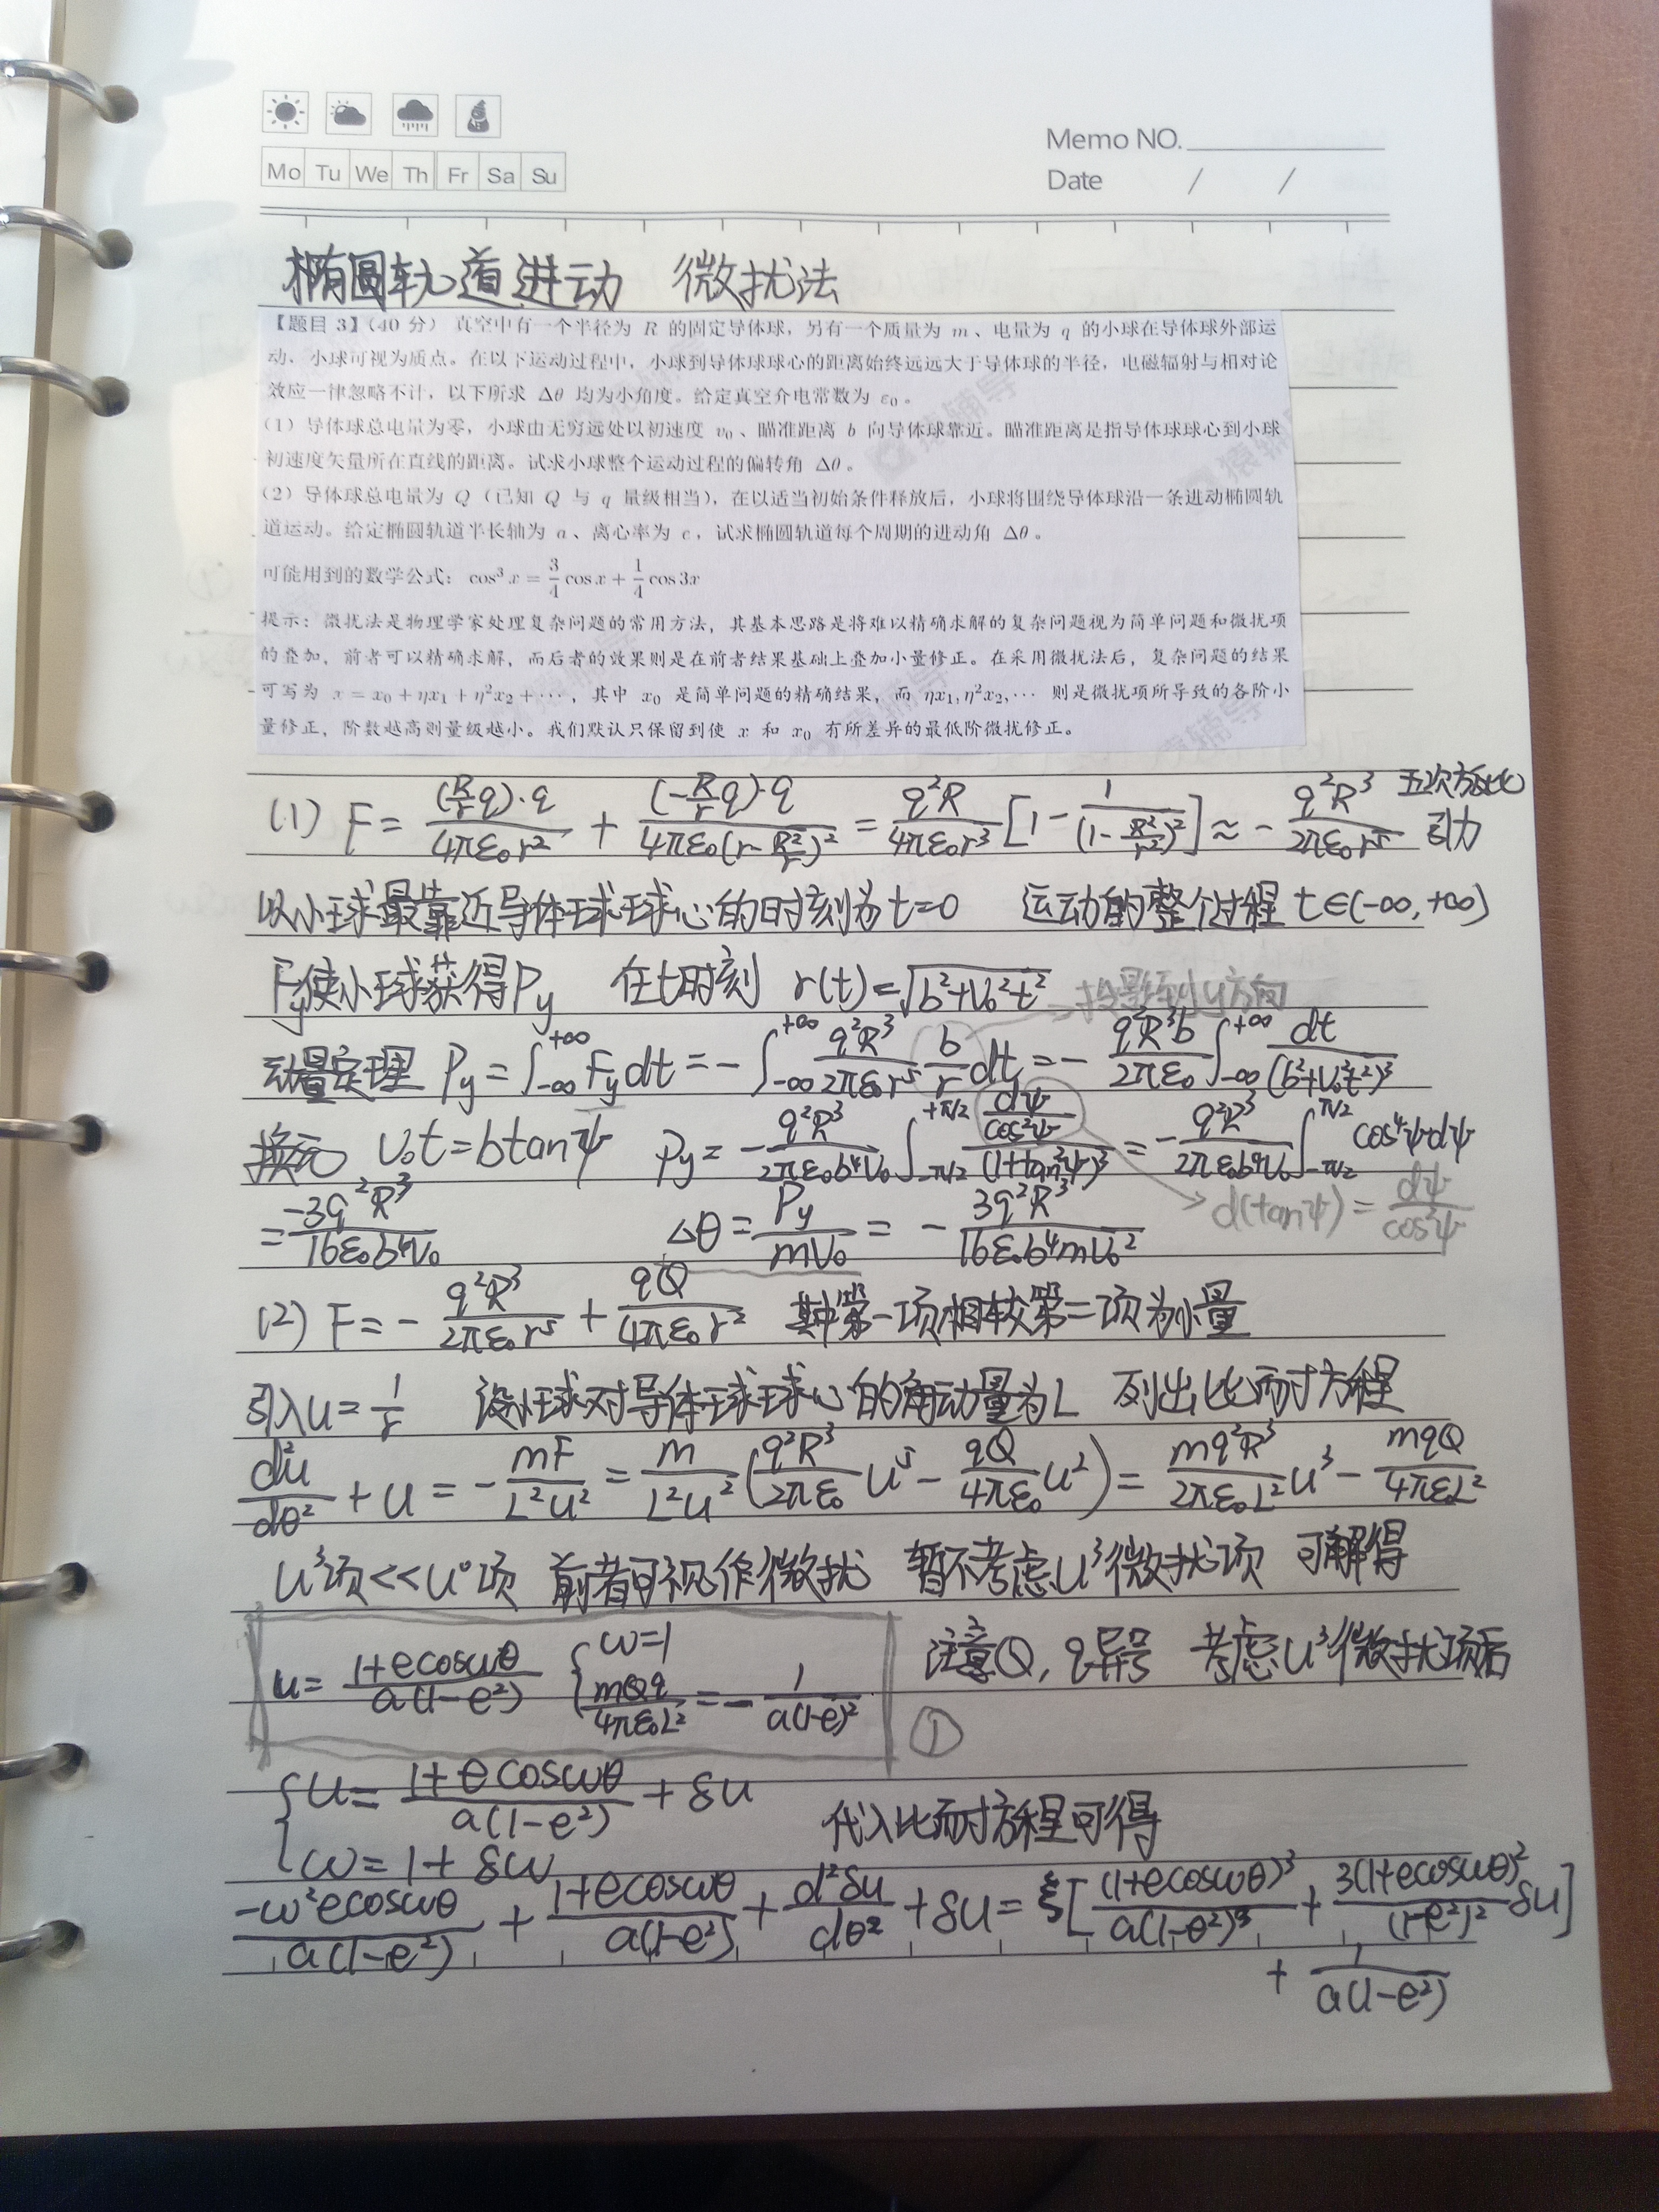 Memo NO.
Mo Tu We Th Fr Sa Su
Date / /
椭圆轨道进动 微扰法
【题目 3】(40 分) 真空中有一个半径为 R 的固定导体球，另有一个质量为 m、电量为 q 的小球在导体球外部运
动，小球可视为质点。在以下运动过程中，小球到导体球球心的距离始终远远大于导体球的半径，电磁辐射与相对论
效应一律忽略不计，以下所求 Δθ 均为小角度。给定真空介电常数为 ε₀。
(1) 导体球总电量为零，小球由无穷远处以初速度 v₀、瞄准距离 b 向导体球靠近。瞄准距离是指导体球球心到小球
初速度矢量所在直线的距离。试求小球整个运动过程的偏转角 Δθ。
(2) 导体球总电量为 Q（已知 Q 与 q 量级相当），在以适当初始条件释放后，小球将围绕导体球沿一条进动椭圆轨
道运动。给定椭圆轨道半长轴为 a、离心率为 e，试求椭圆轨道每个周期的进动角 Δθ。
可能用到的数学公式：cos³x = 3/4 cos x + 1/4 cos 3x
提示：微扰法是物理学家处理复杂问题的常用方法，其基本思路是将难以精确求解的复杂问题视为简单问题和微扰项
的叠加，前者可以精确求解，而后者的效果则是在前者结果基础上叠加小量修正。在采用微扰法后，复杂问题的结果
可写为 x = x₀ + ηx₁ + η²x₂ + ⋯，其中 x₀ 是简单问题的精确结果，而 ηx₁, η²x₂, ⋯ 则是微扰项所导致的各阶小
量修正，阶数越高则量级越小。我们默认只保留到使 x 和 x₀ 有所差异的最低阶微扰修正。
(1) F = (R/r q)·q / 4πε₀r² + (-R/r q)·q / 4πε₀(r - R²/r)² = q²R / 4πε₀r³ [1 - 1/(1 - R²/r²)²] ≈ - q²R³ / 2πε₀r⁵ 五次方反比 引力
以小球最靠近导体球球心的时刻为t=0 运动的整个过程 t∈(-∞, +∞)
Fy使小球获得Py 在t时刻 r(t) = √(b²+v₀²t²) 投影到y方向
动量定理 Py = ∫₋∞^{+∞} Fy dt = - ∫₋∞^{+∞} q²R³/2πε₀r⁵ b/r dt = - q²R³b/2πε₀ ∫₋∞^{+∞} dt/(b²+v₀²t²)³
换元 v₀t = b tanψ Py = - q²R³/2πε₀b⁴v₀ ∫_{-π/2}^{+π/2} (dψ/cos²ψ)/(1+tan²ψ)³ = - q²R³/2πε₀b⁴v₀ ∫_{-π/2}^{π/2} cos⁴ψdψ
= -3q²R³/16ε₀b⁴v₀ Δθ = Py/mv₀ = - 3q²R³/16ε₀b⁴mv₀² d(tanψ) = dψ/cos²ψ
(2) F = - q²R³/2πε₀r⁵ + qQ/4πε₀r² 其中第一项相较第二项为小量
引入u = 1/r 设小球对导体球球心的角动量为L 列出比耐方程
d²u/dθ² + u = - mF/L²u² = m/L²u² (q²R³/2πε₀ u⁵ - qQ/4πε₀ u²) = mq²R³/2πε₀L² u³ - mqQ/4πε₀L²
u³项<<u⁰项 前者可视作微扰 暂不考虑u³微扰项 可解得
u = 1+ecosωθ / a(1-e²) { ω=1 mQq/4πε₀L² = - 1/a(1-e)² 注意Q, q异号 考虑u³微扰项后
①
{ u = 1+ecosωθ / a(1-e²) + δu
代入比耐方程可得
ω = 1 + δω
-ω²ecosωθ / a(1-e²) + 1+ecosωθ / a(1-e²) + d²δu/dθ² + δu = ξ[(1+ecosωθ)³ / a(1-e²)³ + 3(1+ecosωθ)² / (1-e²)² δu]
+ 1/a(1-e²)